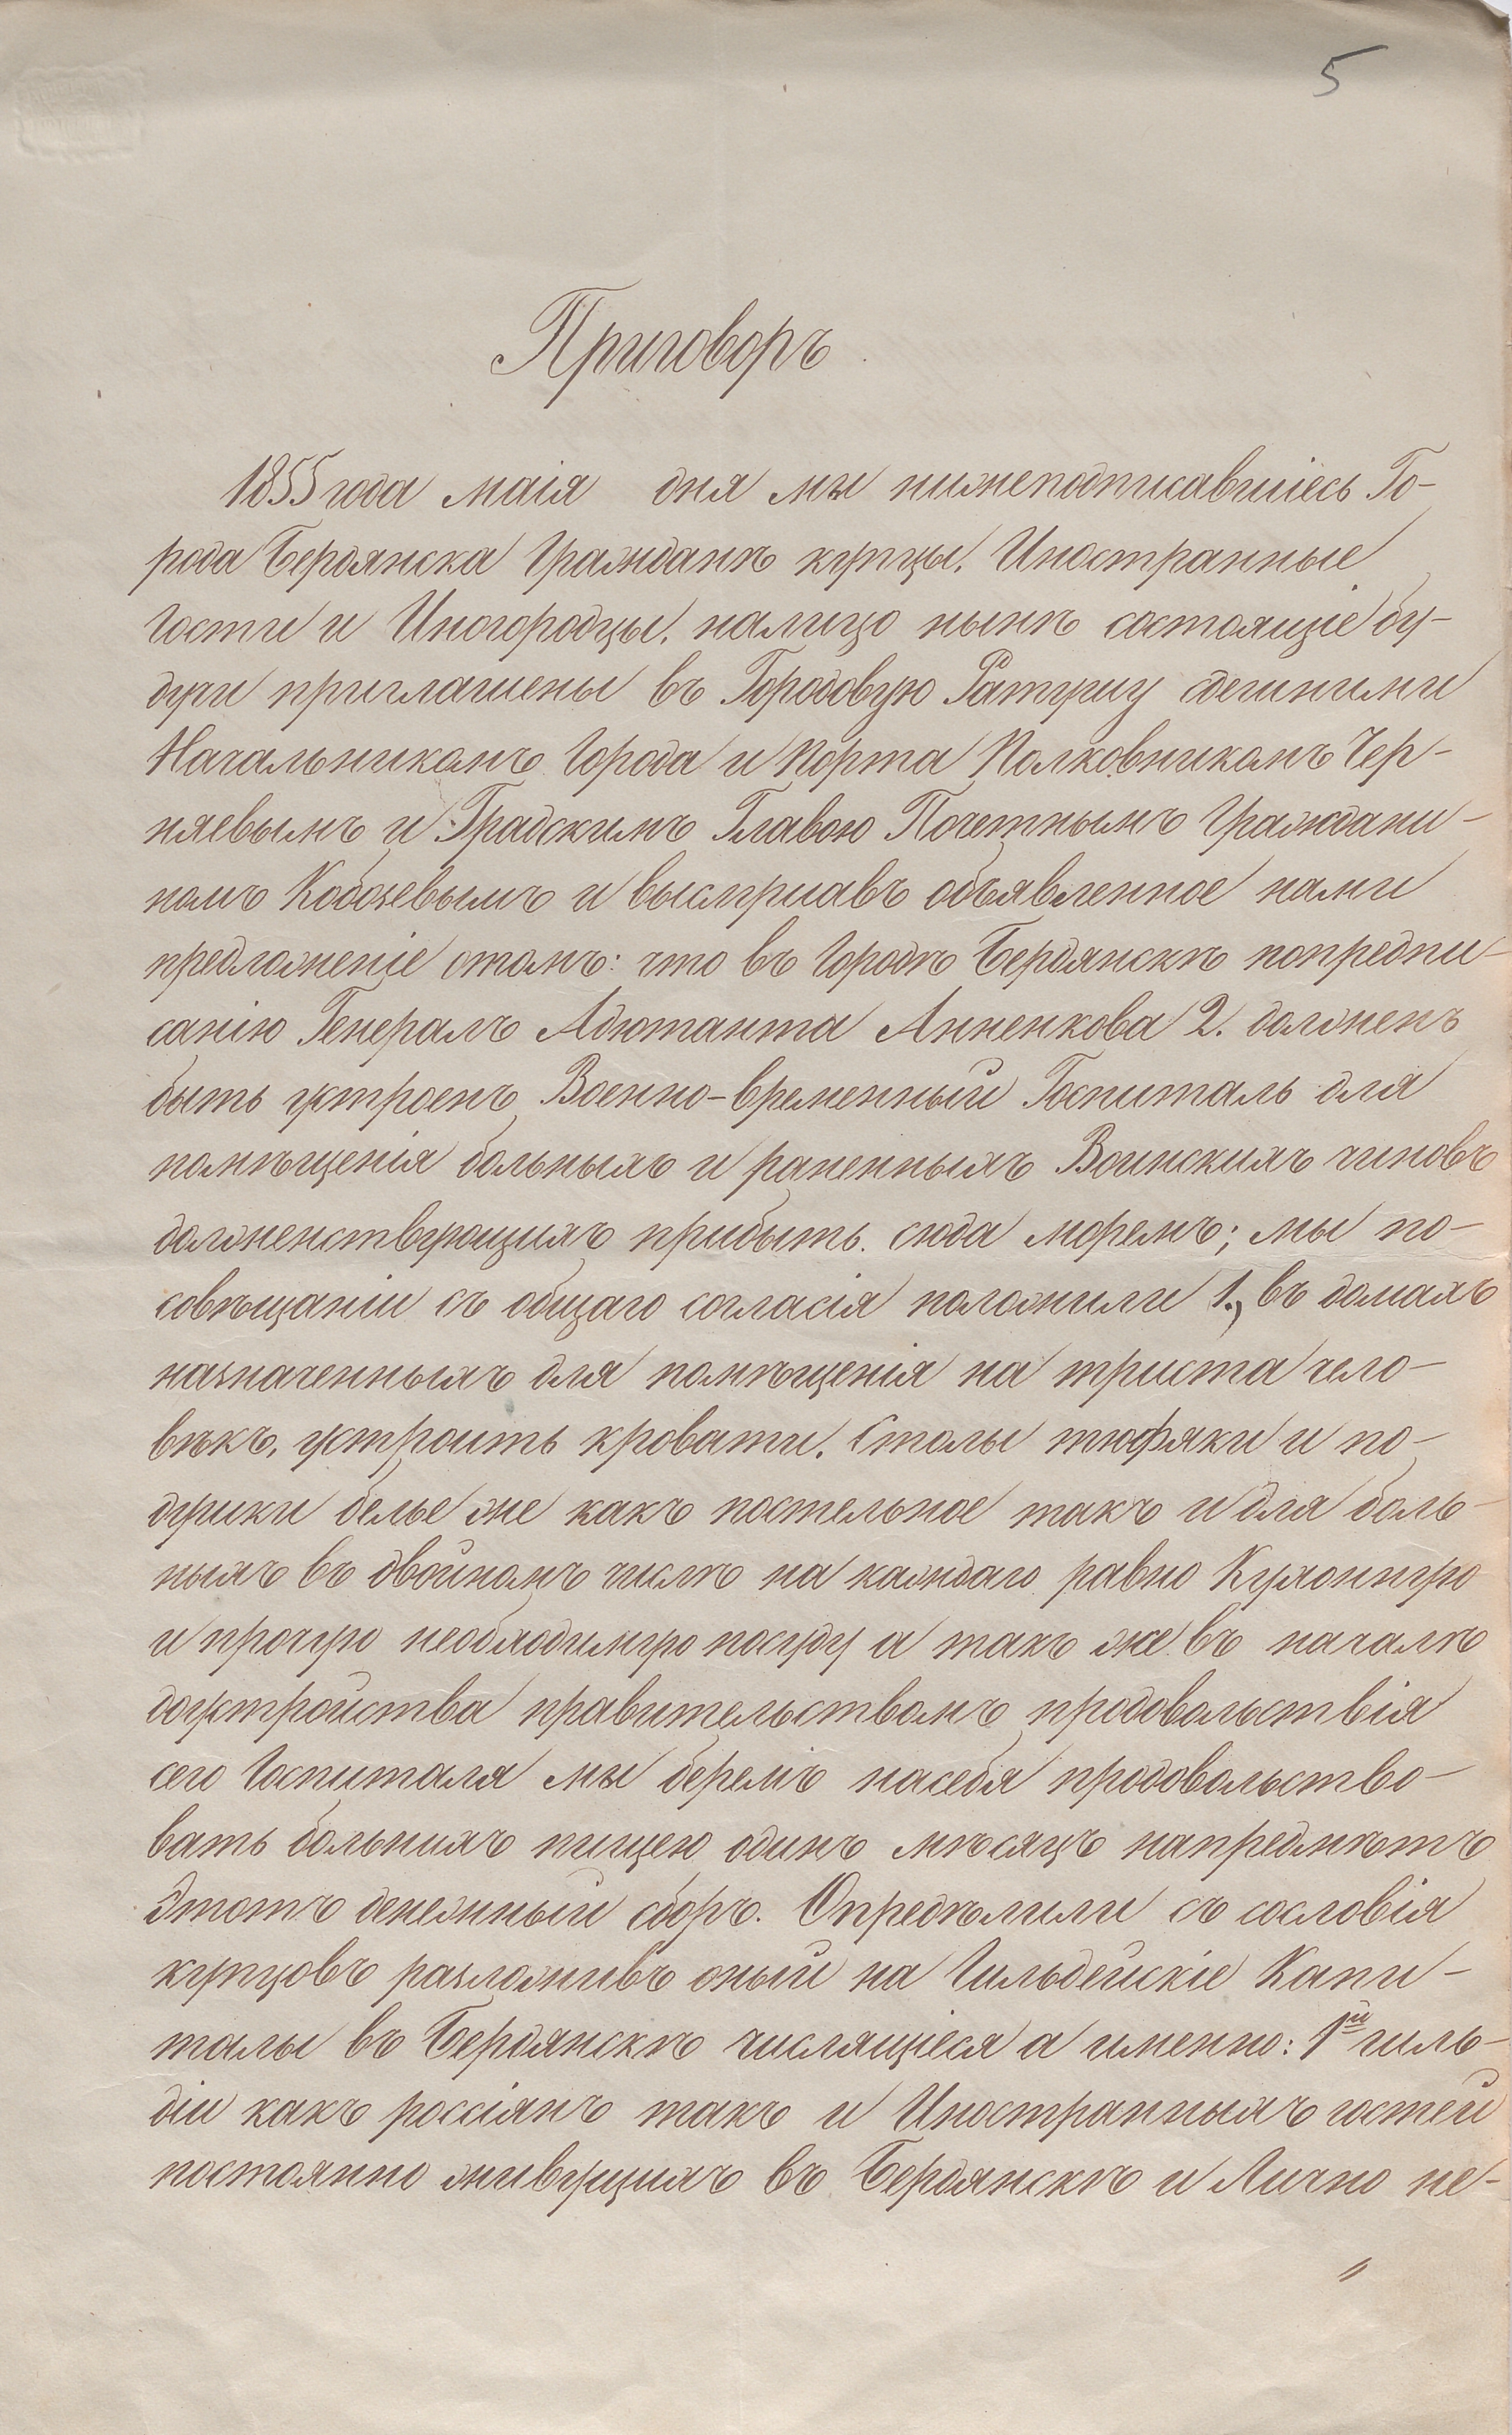 5
Приговоръ
1855 года маія дня мы нижеподписавшіесь Го-
рода Бердянска Гражданѣ купцы, Иностранные
Гости и Иногородцы, налицо нынѣ состоящіе бу-
дучи приглашены въ Городовую Ратушу сдешними
Начальникомъ Города и Порта Полковникомъ Чер-
няевымъ и Градскимъ Главою Почетнымъ Граждани-
номъ Кобозевымъ и выслушавъ объявленное нами
предложеніе отомъ: что въ Городѣ Бердянскѣ попредпи-
санію Генералъ Адютанта Анненкова 2. долженъ
быть устроенъ Военно-временный Госпиталь для
помѣщенія больныхъ и раненныхъ Воинскихъ чиновъ
долженствующихъ прибыть сюда моремъ; мы по-
совѣщаніи съ общаго согласія положили 1., въ домахъ
назначенныхъ для помѣщенія на триста чело-
вѣкъ, устроить кровати, Столы тюфяки и по-
душки белье же какъ постельное такъ и для боль-
ныхъ въ двойномъ числѣ на каждаго равно Кухонную
и прочую необходимую посуду а такъ же въ началѣ
доустройства правительствомъ продовольствія
сего Госпиталя мы беремъ насебя продовольство-
вать больныхъ пищею одинъ мѣсяцъ напредмѣтъ
Этотъ денежный сборъ. Опредѣлили съ сословія
купцовъ разложивъ оный на Гильдейскіе Капи-
талы въ Бердянскѣ числящіеся а именно: 1й гиль-
діи какъ россіянъ такъ и Иностранныхъ гостей
постоянно живущихъ въ Бердянскѣ и Лично не-